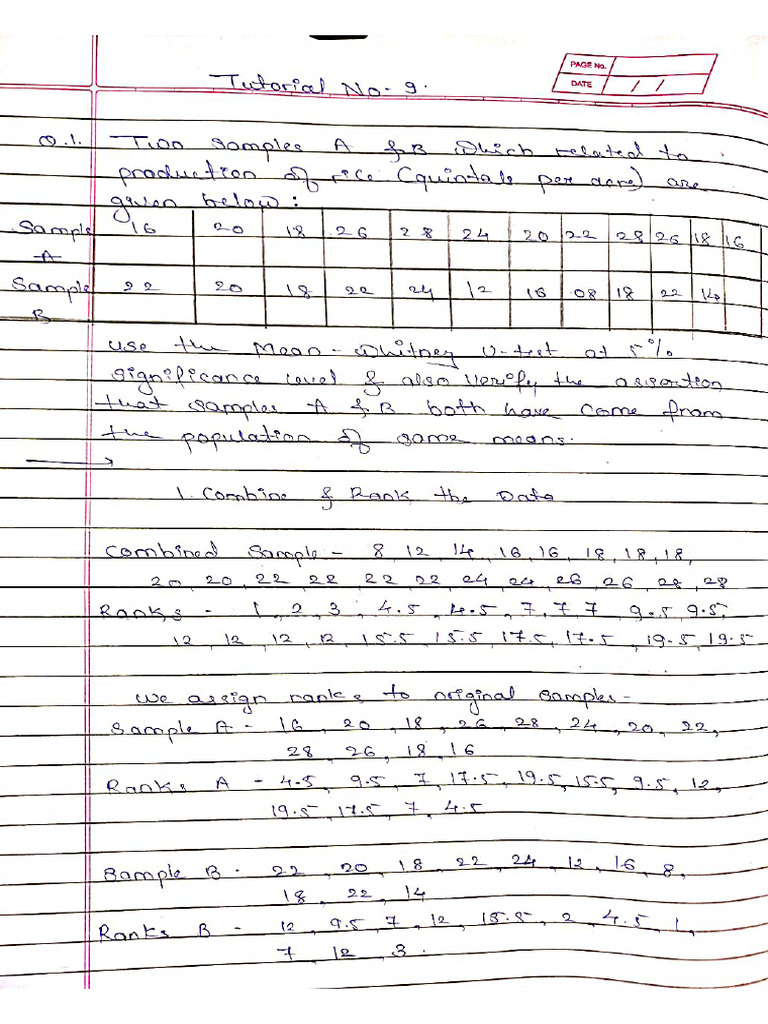 PAGE No.
DATE / /
Tutorial No- 9.
Q.1. Two samples A & B which related to
production of rice (quintals per acre) are
given below :
Sample A 16 20 18 26 28 24 20 22 28 26 18 16
Sample B 22 20 18 22 24 12 16 08 18 22 14
use the Mean - Whitney U-test at 5%
significance level & also verify the assertion
that samples A & B both have come from
the population of same means.
1. Combine & Rank the Data
Combined Sample - 8, 12, 14, 16, 16, 18, 18, 18,
20, 20, 22, 22, 22, 22, 24, 24, 26, 26, 28, 28
Ranks - 1, 2, 3, 4.5, 4.5, 7, 7, 7, 9.5, 9.5,
12, 12, 12, 12, 15.5, 15.5, 17.5, 17.5, 19.5, 19.5
We assign ranks to original samples -
Sample A - 16, 20, 18, 26, 28, 24, 20, 22,
28, 26, 18, 16
Ranks A - 4.5, 9.5, 7, 17.5, 19.5, 15.5, 9.5, 12,
19.5, 17.5, 7, 4.5
Sample B - 22, 20, 18, 22, 24, 12, 16, 8,
18, 22, 14
Ranks B - 12, 9.5, 7, 12, 15.5, 2, 4.5, 1,
7, 12, 3.